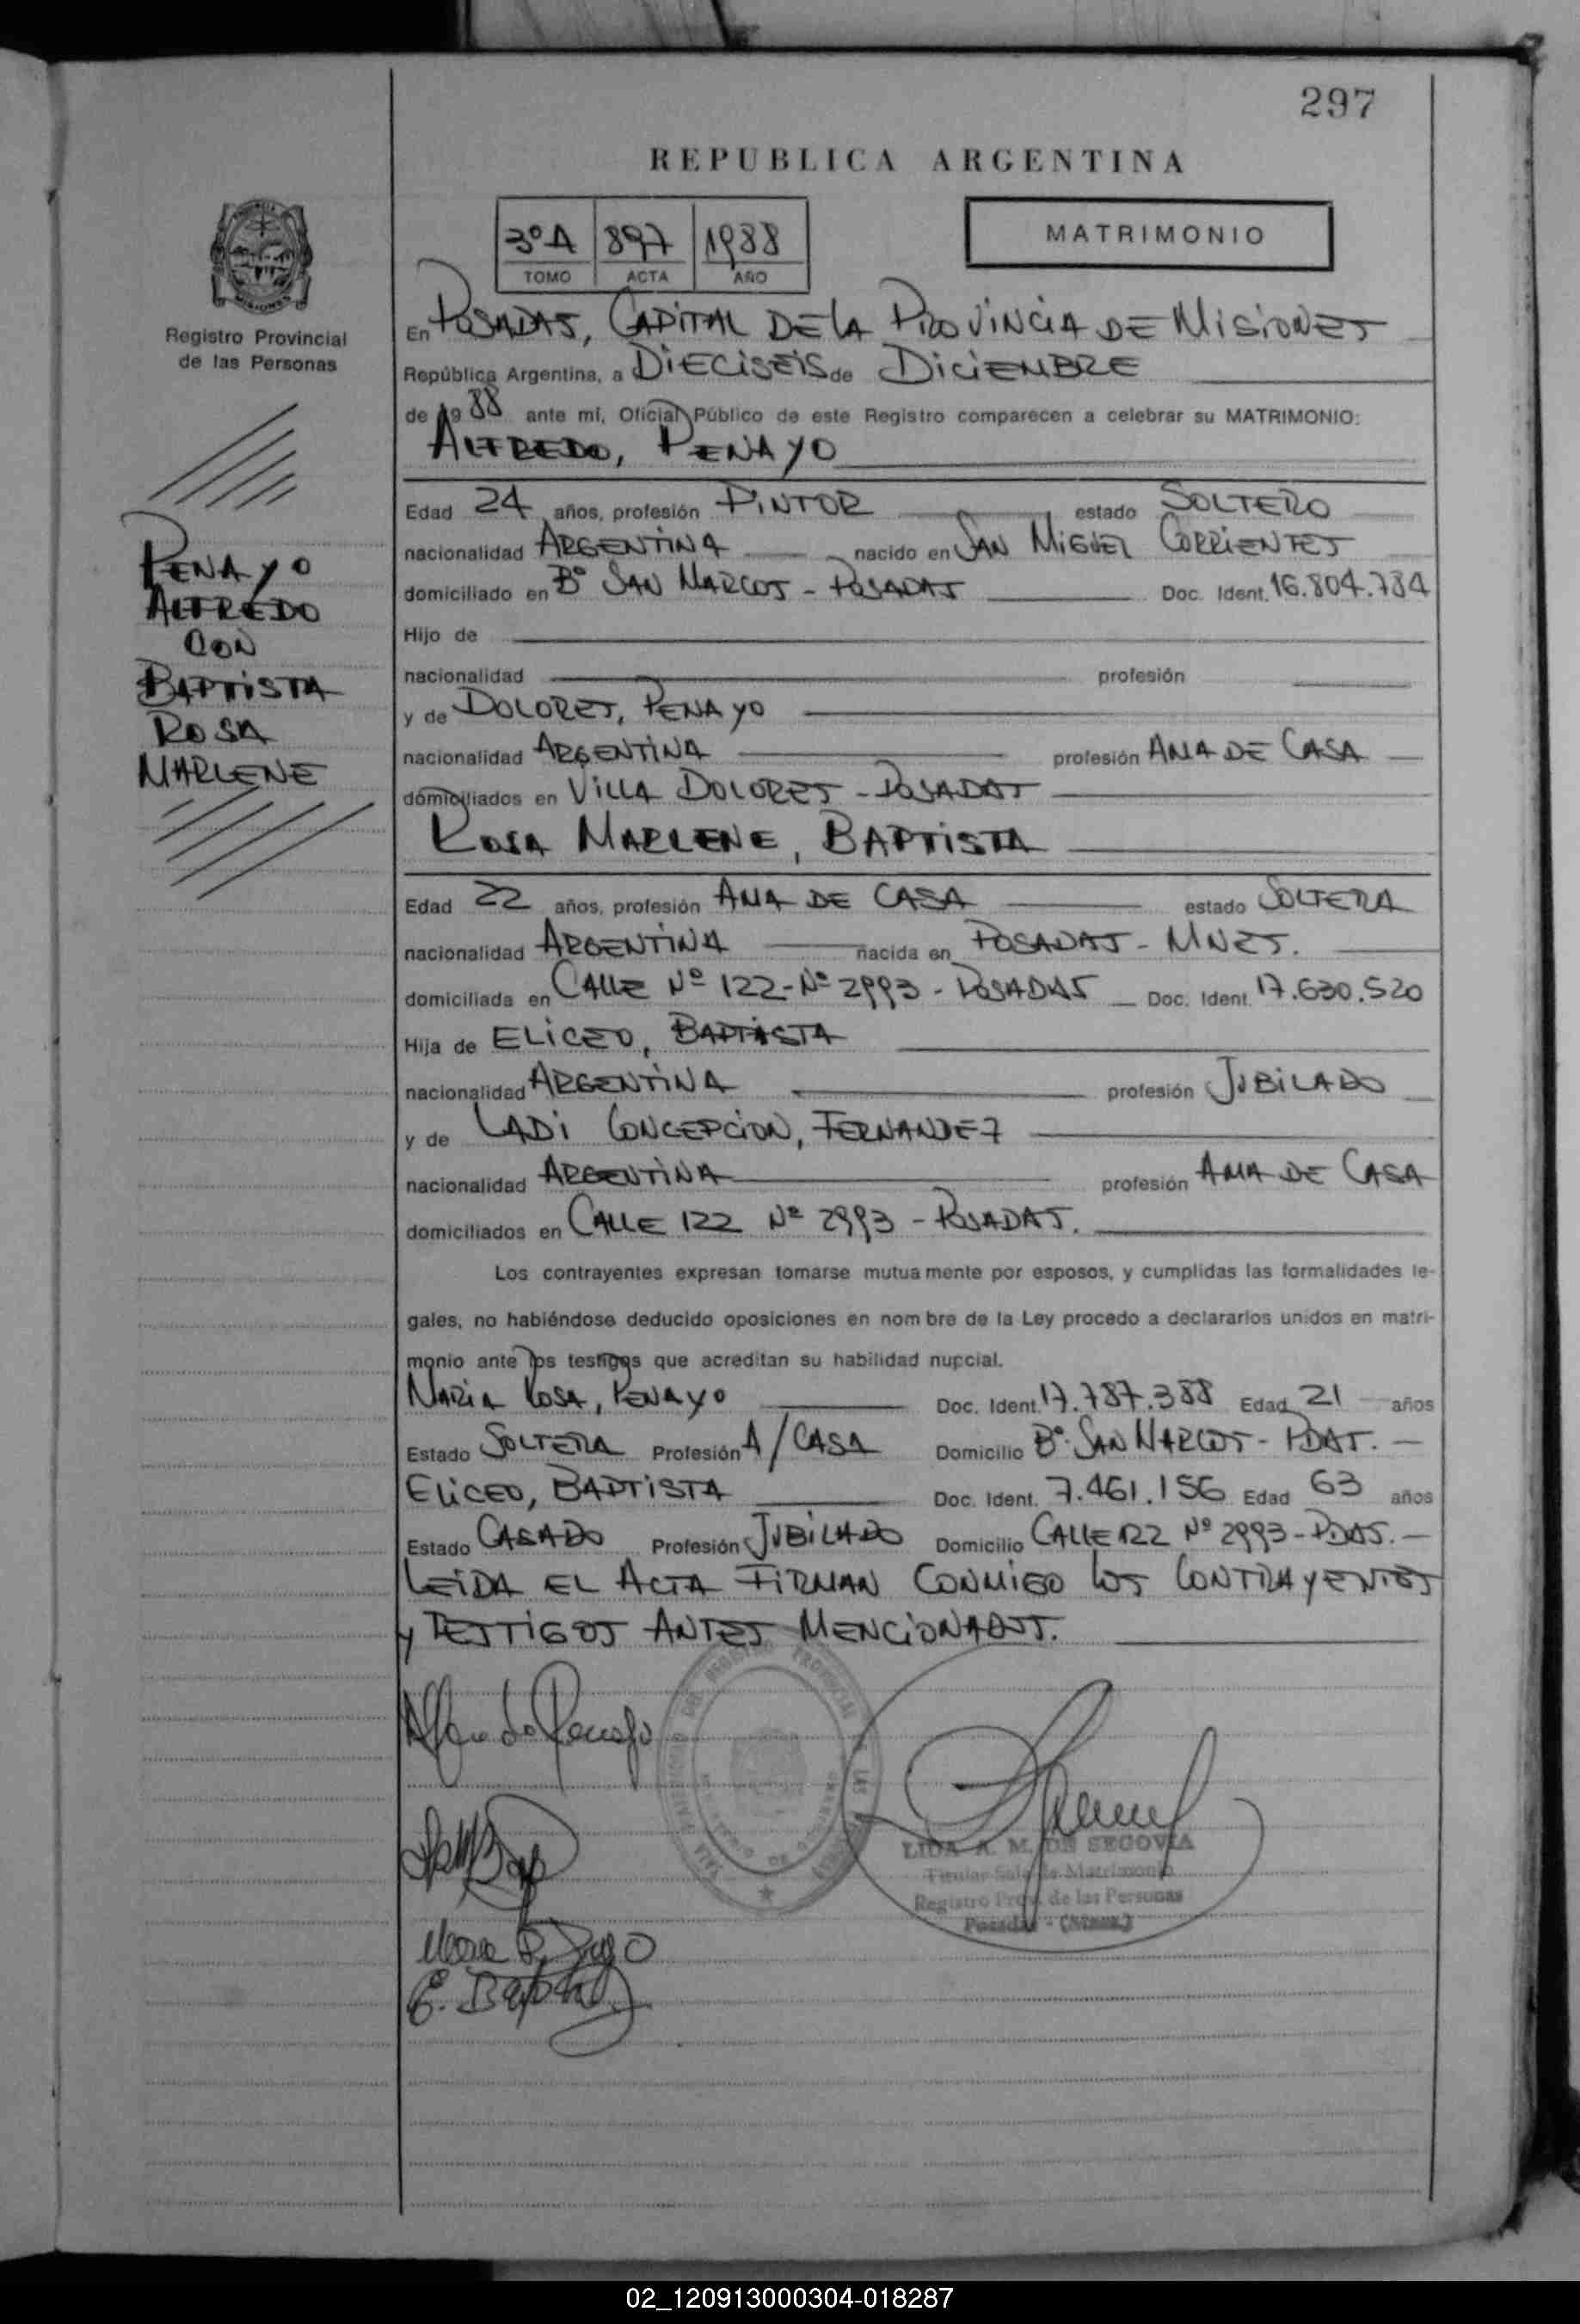 297
REPUBLICA ARGENTINA
3º A 897 1988
TOMO ACTA AÑO
MATRIMONIO
Registro Provincial
de las Personas
En POSADAS, CAPITAL DE LA PROVINCIA DE MISIONES
República Argentina, a DIECISEIS de DICIEMBRE
de 1988 ante mí, Oficial Público de este Registro comparecen a celebrar su MATRIMONIO:
ALFREDO, PENAYO
PENAYO
ALFREDO
CON
BAPTISTA
ROSA
MARLENE
Edad 24 años, profesión PINTOR estado SOLTERO
nacionalidad ARGENTINA nacido en SAN MIGUEL CORRIENTES
domiciliado en Bº SAN MARCOS - POSADAS Doc. Ident. 16.804.784
Hijo de
nacionalidad profesión
y de DOLORES, PENAYO
nacionalidad ARGENTINA profesión AMA DE CASA
domiciliados en VILLA DOLORES - POSADAS
ROSA MARLENE, BAPTISTA
Edad 22 años, profesión AMA DE CASA estado SOLTERA
nacionalidad ARGENTINA nacida en POSADAS - MNES.
domiciliada en CALLE Nº 122 - Nº 2993 - POSADAS Doc. Ident. 17.630.520
Hija de ELICEO, BAPTISTA
nacionalidad ARGENTINA profesión JUBILADO
y de LADI CONCEPCION, FERNANDEZ
nacionalidad ARGENTINA profesión AMA DE CASA
domiciliados en CALLE 122 Nº 2993 - POSADAS.
Los contrayentes expresan tomarse mutuamente por esposos, y cumplidas las formalidades le-
gales, no habiéndose deducido oposiciones en nombre de la Ley procedo a declararlos unidos en matri-
monio ante los testigos que acreditan su habilidad nupcial.
MARIA ROSA, PENAYO Doc. Ident. 17.787.388 Edad 21 años
Estado SOLTERA Profesión A/CASA Domicilio Bº SAN MARCOS - PDAS.
ELICEO, BAPTISTA Doc. Ident. 7.461.156 Edad 63 años
Estado CASADO Profesión JUBILADO Domicilio CALLE 122 Nº 2993 - PDAS.
LEIDA EL ACTA FIRMAN CONMIGO LOS CONTRAYENTES
Y TESTIGOS ANTES MENCIONADOS.
Alfredo Penayo
LIDA A. M. DE SEGOVIA
Titular Sala de Matrimonio
Registro Prov. de las Personas
Posadas - (Mnes.)
E. Baptista
02_120913000304-018287